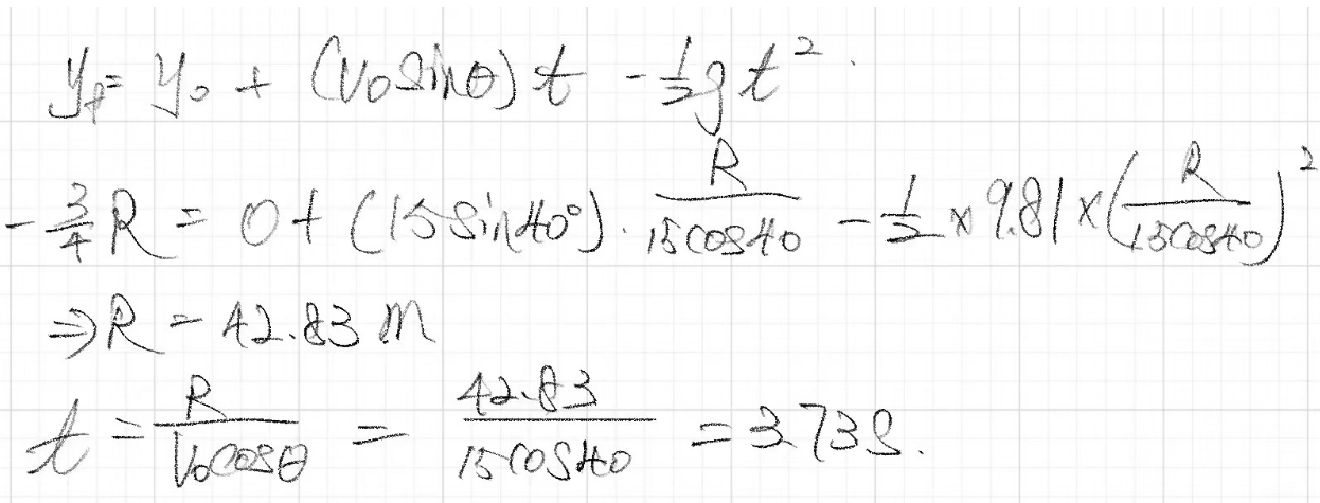 y_f = y_0 + (v_0 sinθ) t - 1/2 g t² .
- 3/4 R = 0 + (15 sin40°) · R/(15cos40) - 1/2 × 9.81 × (R/(15cos40))²
⇒ R = 42.83 m
t = R/(V_0 cosθ) = 42.83/(15cos40) = 3.73s.